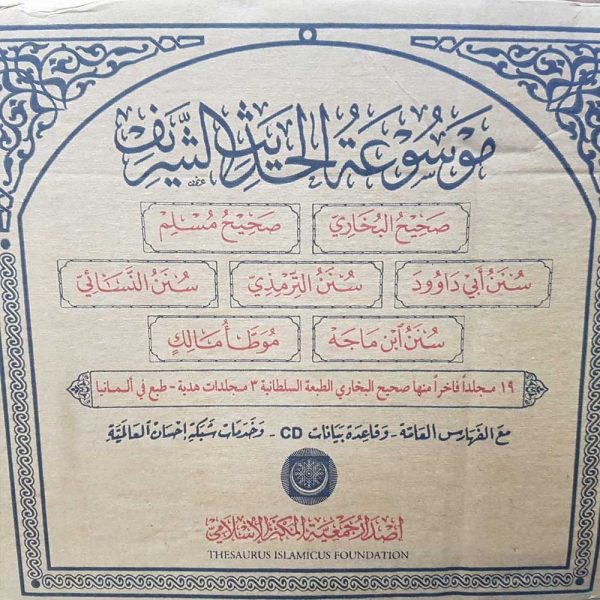 مَوْسُوعَةُ الحَدِيثِ الشَّرِيفِ
صَحِيحُ البُخَارِيّ صَحِيحُ مُسْلِم
سُنَنُ أَبِي دَاوُود سُنَنُ التِّرْمِذِي سُنَنُ النَّسَائِيّ
سُنَنُ ابْن مَاجَه مُوَطَّأ مَالِك
١٩ مجلداً فاخراً منها صحيح البخاري الطبعة السلطانية ٣ مجلدات هدية - طبع في ألمانيا
مع الفهارس العامة - وقاعدة بيانات CD - وخدمات شبكة إحسان العالميَّة
إصدار جمعية المكنز الإسلامي
THESAURUS ISLAMICUS FOUNDATION